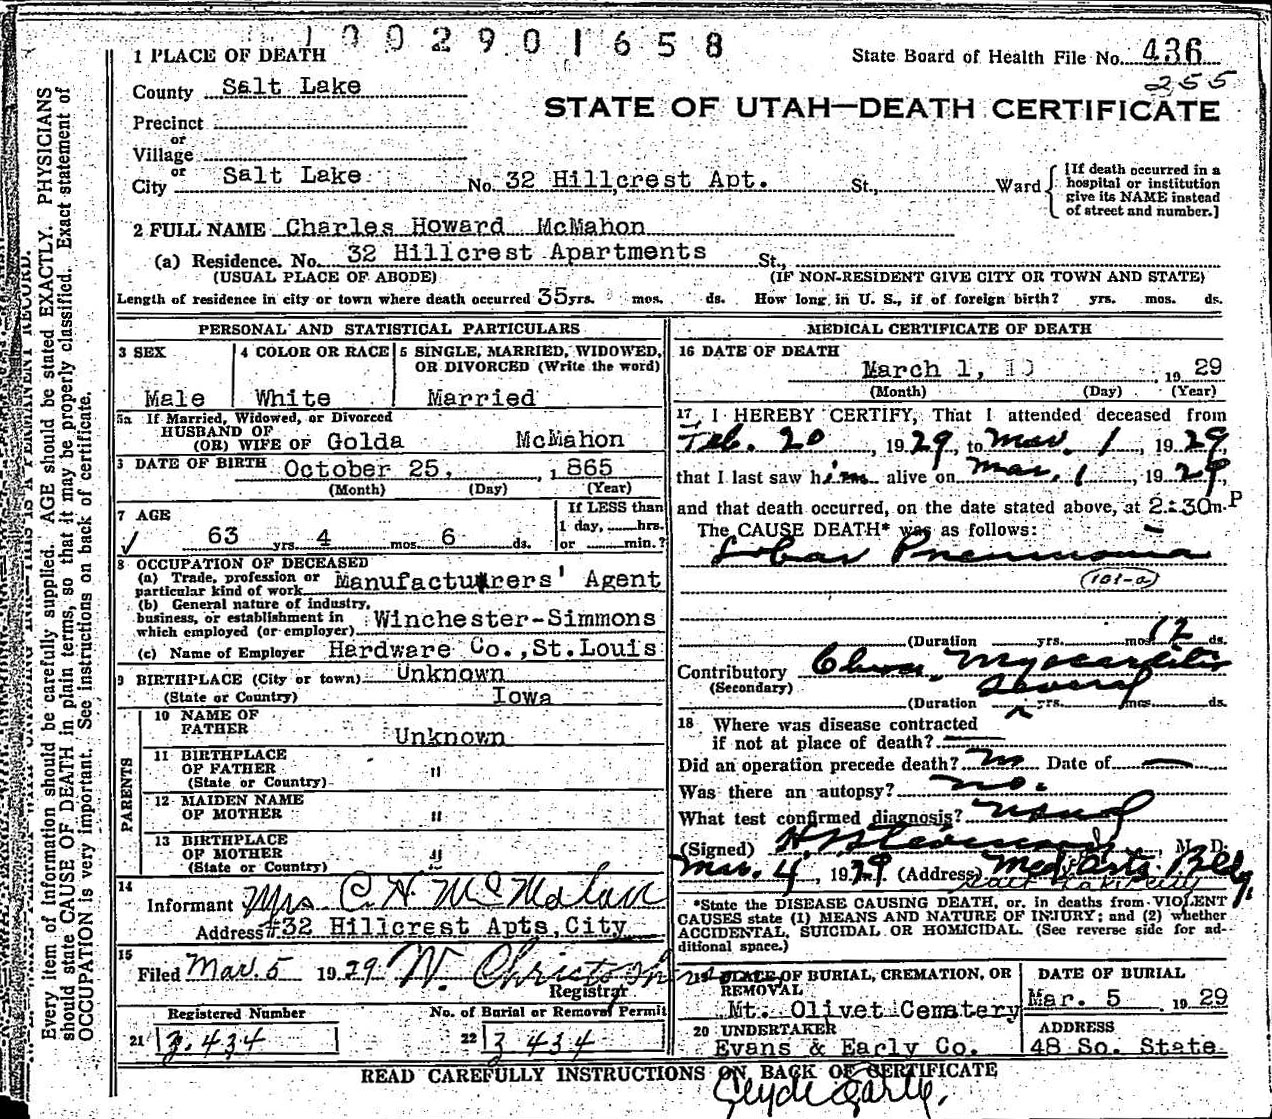 1002901658
1 PLACE OF DEATH
State Board of Health File No. 436
255
County Salt Lake
STATE OF UTAH—DEATH CERTIFICATE
Precinct
or
Village
or
City Salt Lake No. 32 Hillcrest Apt. St., Ward
[If death occurred in a hospital or institution give its NAME instead of street and number.]
2 FULL NAME Charles Howard McMahon
(a) Residence. No. 32 Hillcrest Apartments St.,
(USUAL PLACE OF ABODE) (IF NON-RESIDENT GIVE CITY OR TOWN AND STATE)
Length of residence in city or town where death occurred 35 yrs. mos. ds. How long in U. S., if of foreign birth? yrs. mos. ds.
PERSONAL AND STATISTICAL PARTICULARS
3 SEX
Male
4 COLOR OR RACE
White
5 SINGLE, MARRIED, WIDOWED,
OR DIVORCED (Write the word)
Married
5a If Married, Widowed, or Divorced
HUSBAND OF
(OR) WIFE OF Golda McMahon
DATE OF BIRTH October 25, 1865
(Month) (Day) (Year)
7 AGE
63 yrs. 4 mos. 6 ds.
If LESS than
1 day, hrs.
or min.?
8 OCCUPATION OF DECEASED
(a) Trade, profession or
particular kind of work Manufacturers' Agent
(b) General nature of industry,
business, or establishment in
which employed (or employer) Winchester-Simmons
(c) Name of Employer Hardware Co., St.Louis
9 BIRTHPLACE (City or town) Unknown
(State or Country) Iowa
PARENTS
10 NAME OF
FATHER Unknown
11 BIRTHPLACE
OF FATHER "
(State or Country)
12 MAIDEN NAME
OF MOTHER "
13 BIRTHPLACE
OF MOTHER "
(State or Country)
14
Informant Mrs C. H. McMahon
Address #32 Hillcrest Apts, City
15
Filed Mar. 5 1929 W. Christopherson
Registrar
Registered Number
21 3.434
No. of Burial or Removal Permit
22 3 434
MEDICAL CERTIFICATE OF DEATH
16 DATE OF DEATH
March 1, 1929
(Month) (Day) (Year)
17 I HEREBY CERTIFY, That I attended deceased from
Feb. 20, 1929, to Mar. 1, 1929,
that I last saw him alive on Mar. 1, 1929,
and that death occurred, on the date stated above, at 2:30 m. P
The CAUSE DEATH* was as follows:
Lobar Pneumonia
(101-a)
(Duration yrs. mos. 12 ds.
Contributory Chron. Myocarditis
(Secondary) several
(Duration yrs. mos. ds.
18 Where was disease contracted
if not at place of death?
Did an operation precede death? no Date of —
Was there an autopsy? no.
What test confirmed diagnosis? usual
(Signed) M. D.
Mar. 4, 1929 (Address) Med Arts Bldg.
Salt Lake City
*State the DISEASE CAUSING DEATH, or, in deaths from VIOLENT
CAUSES state (1) MEANS AND NATURE OF INJURY; and (2) whether
ACCIDENTAL, SUICIDAL OR HOMICIDAL. (See reverse side for ad-
ditional space.)
19 PLACE OF BURIAL, CREMATION, OR
REMOVAL
Mt. Olivet Cemetery
DATE OF BURIAL
Mar. 5 1929
20 UNDERTAKER
Evans & Early Co.
ADDRESS
48 So. State
READ CAREFULLY INSTRUCTIONS ON BACK OF CERTIFICATE
Clyde Early.
Every item of Information should be carefully supplied. AGE should be stated EXACTLY. PHYSICIANS
should state CAUSE OF DEATH in plain terms, so that it may be properly classified. Exact statement of
OCCUPATION is very important. See instructions on back of certificate.